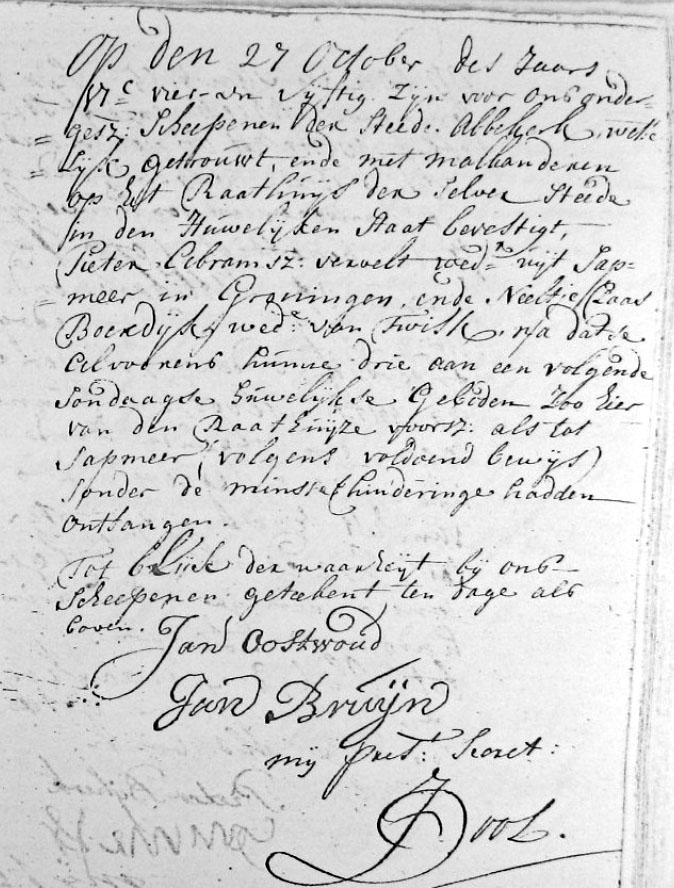 Op den 27 October des Jaars
17C vier en vijftig zijn voor ons onder-
gesz: Scheepenen der Steede Abbekerk, wette
lijk getrouwt, ende met malkanderen
op het Raathuijs der selver Steede
in den Huwelijken Staat bevestigt,
Pieter Abramsz: vervelt wedr uijt Sap-
meer in Groningen, ende Neeltje Claas
Boendijk, wede van Twisk, na dat se
alvoorens hunne drie aan een volgende
Sondaagse huwelijkse Geboden zoo hier
van den Raathuijze voorsz: als tot
Sapmeer (volgens voldoend bewijs)
sonder de minste hinderinge hadden
ontfangen.
Tot blijck der waarheijt bij ons
Scheepenen getekent ten dage als
boven.
Jan Oostwoud
Jan Bruijn
mij prest: Secret:
Pieter Bijkerk
Kool.